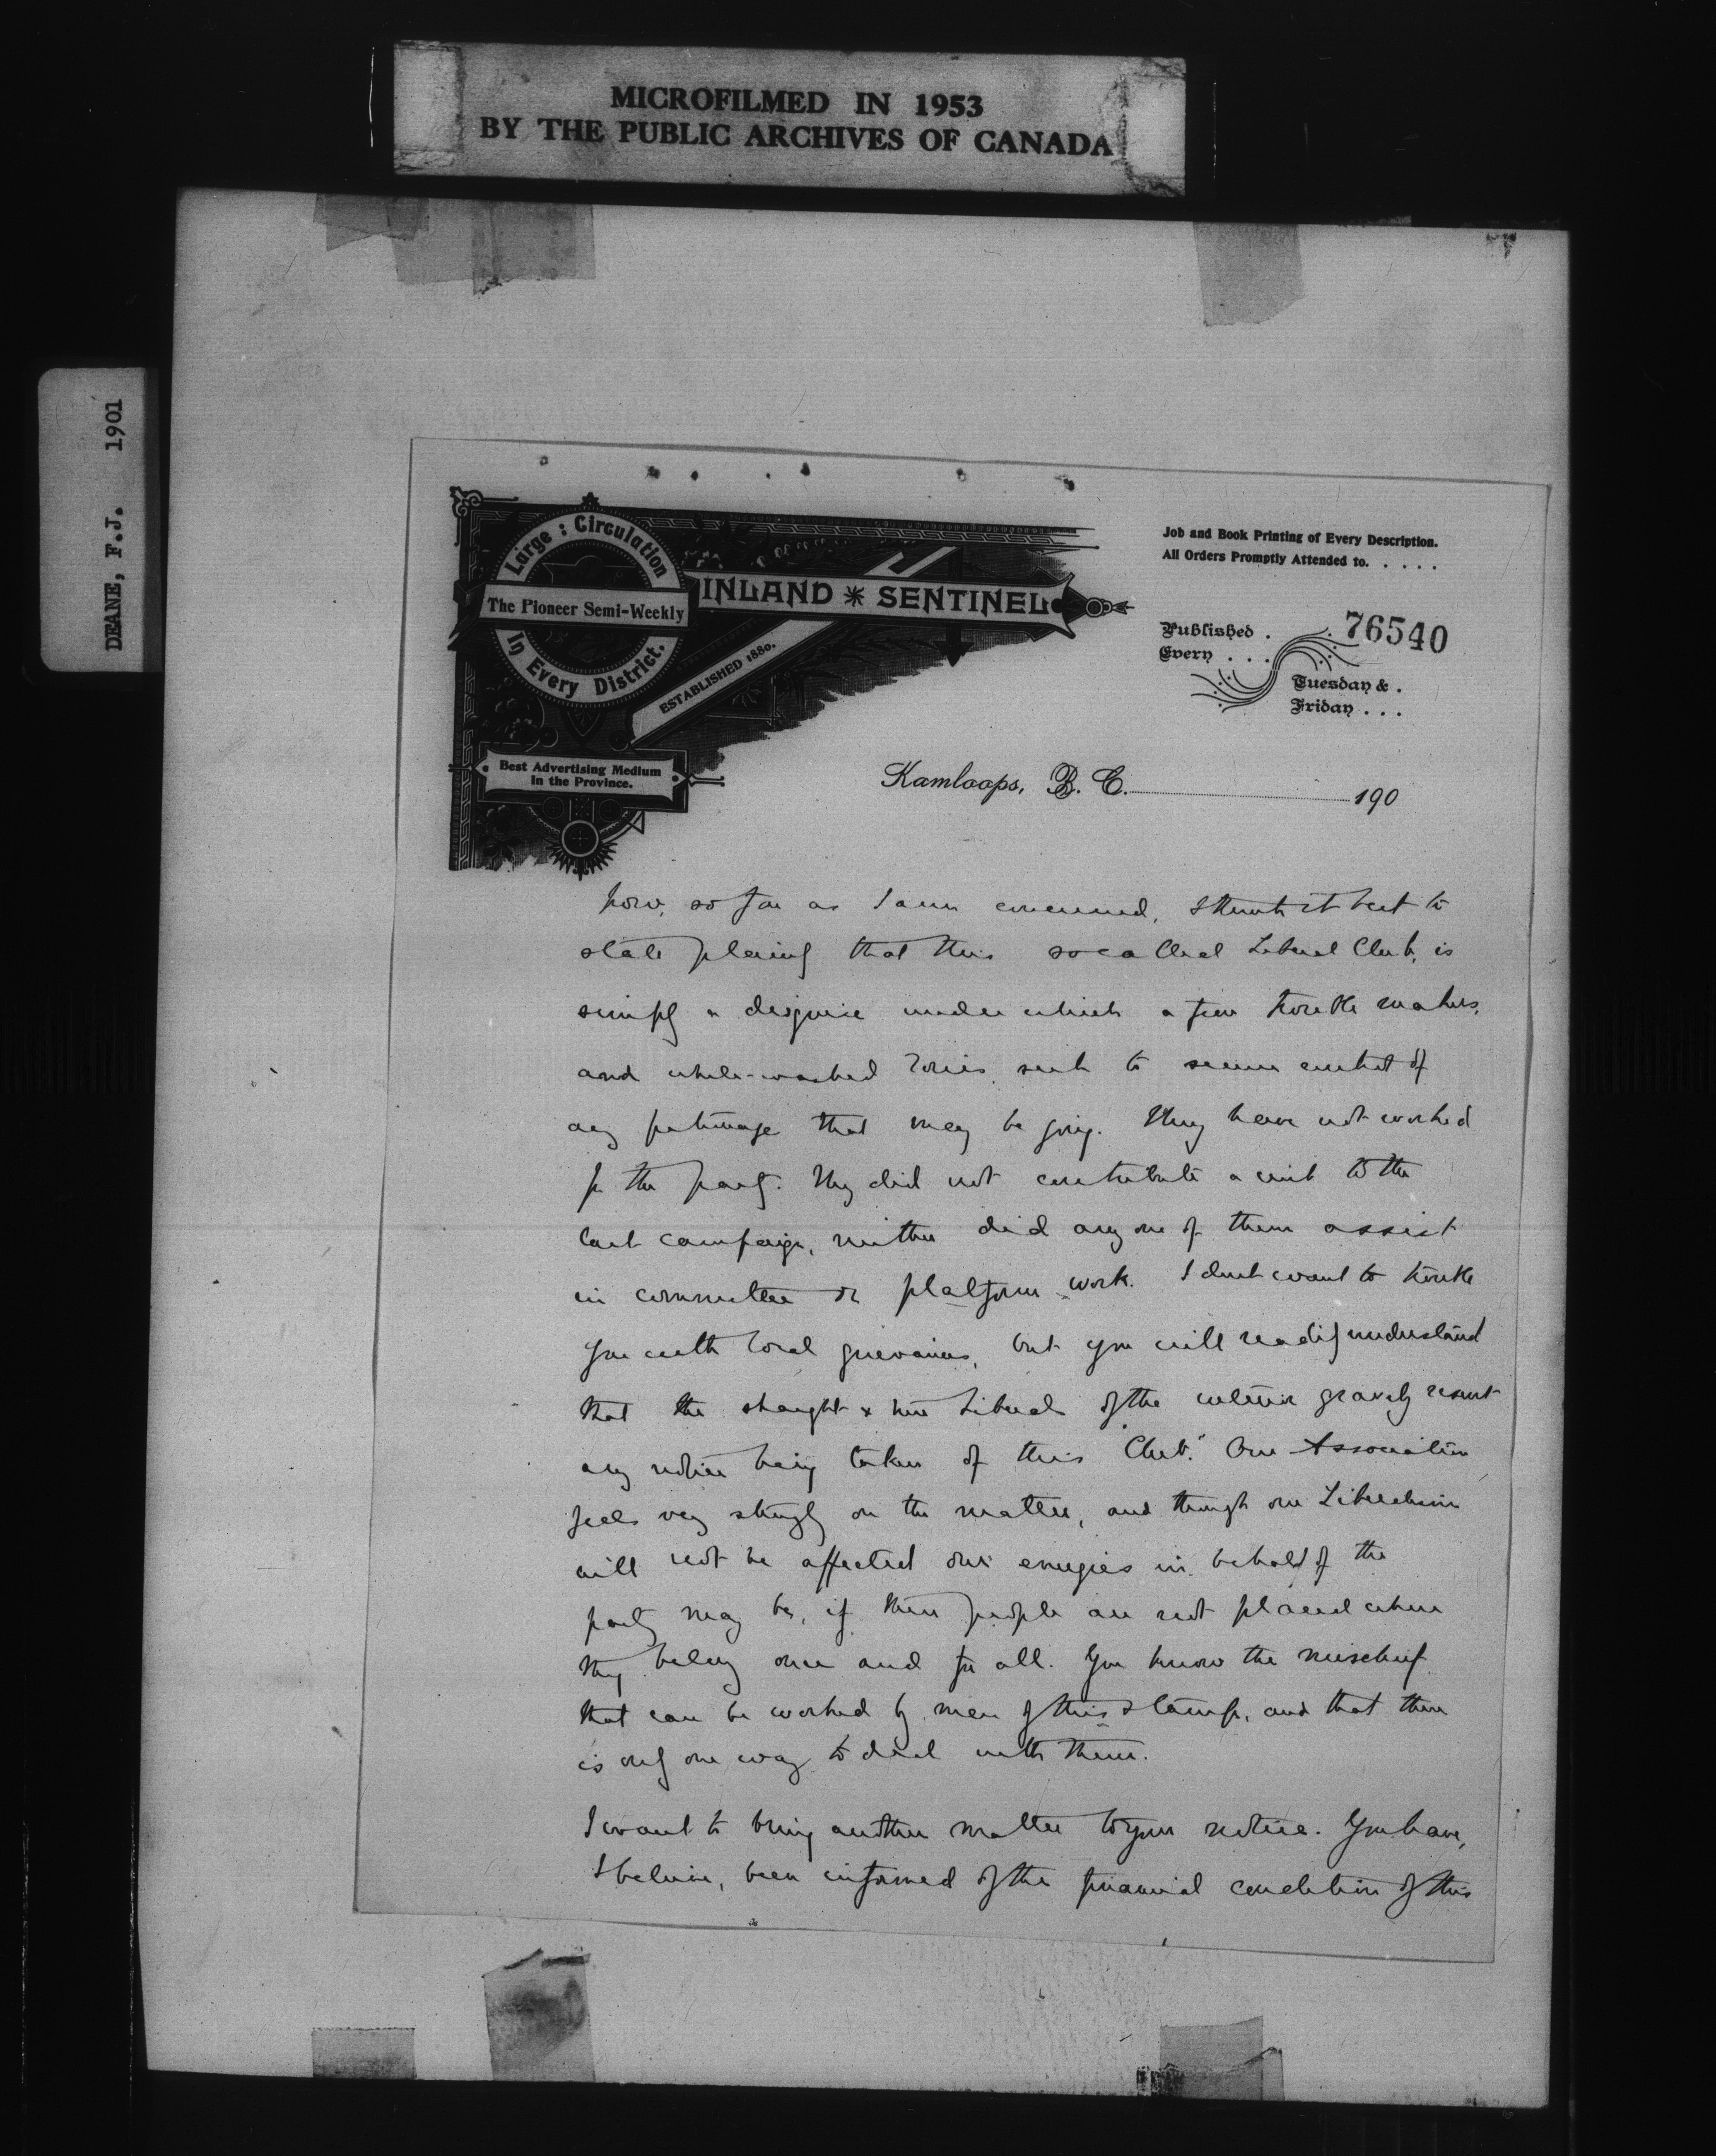 MICROFILMED IN 1953
BY THE PUBLIC ARCHIVES OF CANADA
DEANE, F.J. 1901
Large : Circulation
The Pioneer Semi-Weekly
In Every District.
INLAND * SENTINEL
ESTABLISHED 1880.
Best Advertising Medium
In the Province.
Job and Book Printing of Every Description.
All Orders Promptly Attended to. . . . .
76540
Published .
Every . . .
Tuesday & .
Friday . . .
Kamloops, B. C. 190
now, so far as I am concerned, I think it best to
state plainly that this so called Liberal Club, is
simply a disguise under which a few trouble makers,
and white-washed Tories, seek to secure control of
any patronage that may be going. They have not worked
for the party. They did not contribute a cent to the
last campaign, neither did any one of them assist
in committee or platform work. I dont want to trouble
you with local grievances, but you will readily understand
that the straight & true Liberals of the interior gravely resent
any notice being taken of this "Club." Our Association
feels very strongly on the matter, and though our Liberalism
will not be affected our energies in behalf of the
party may be, if these people are not placed where
they belong once and for all. You know the mischief
that can be worked by men of this stamp, and that there
is only one way to deal with them.
I want to bring another matter to your notice. You have,
I believe, been informed of the financial condition of this